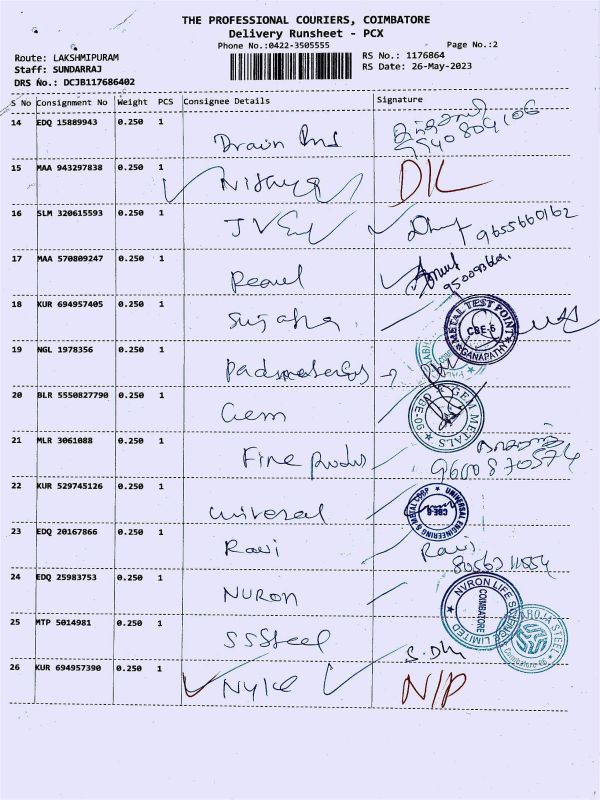 THE PROFESSIONAL COURIERS, COIMBATORE
Delivery Runsheet - PCX
Phone No.:0422-3505555 Page No.:2
Route: LAKSHMIPURAM RS No.: 1176864
Staff: SUNDARRAJ RS Date: 26-May-2023
DRS No.: DCJB117686402
S No Consignment No Weight PCS Consignee Details Signature
14 EDQ 15889943 0.250 1
15 MAA 943297838 0.250 1 Nithya D/L
16 SLM 320615593 0.250 1 9655660162
17 MAA 570809247 0.250 1
18 KUR 694957405 0.250 1 Sujatha METAL TEST POINT CBE-6 GANAPATHY
19 NGL 1978356 0.250 1
20 BLR 5550827790 0.250 1 Gem GEM METALS CBE-09
21 MLR 3061088 0.250 1 Fine
22 KUR 529745126 0.250 1 Universal UNIVERSAL ENGINEERING & METAL CORP CBE-6
23 EDQ 20167866 0.250 1 Ravi Ravi
24 EDQ 25983753 0.250 1 NVRON NVRON LIFE SCIENCE LIMITED COIMBATORE
25 MTP 5014981 0.250 1 SSSteel S. SAROJA STEEL Coimbatore
26 KUR 694957390 0.250 1 N/P